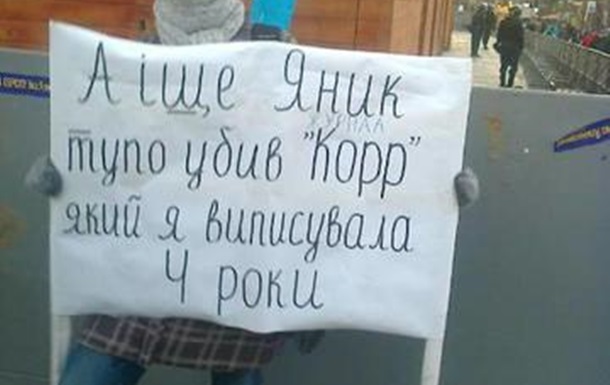 А іще Яник
журнал
тупо убив "Корр"
який я виписувала
4 роки